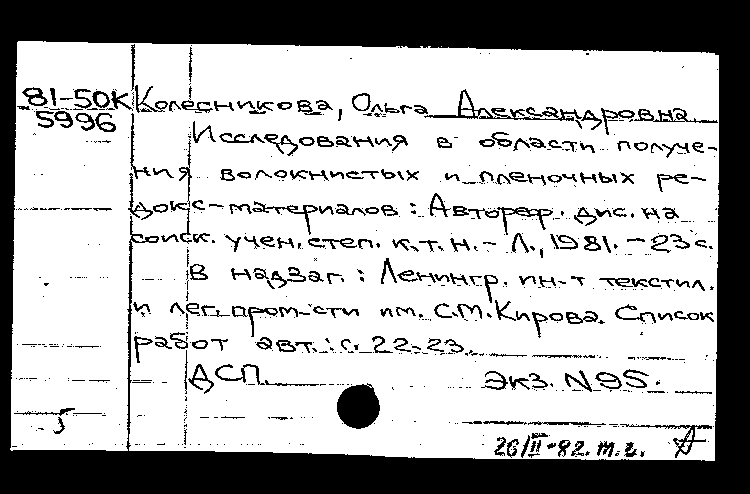 81-50К Колесникова, Ольга Александровна
5996
Исследования в области получе-
ния волокнистых и пленочных ре-
докс-материалов : Автореф. дис. на
соиск. учен. степ. к.т.н. - Л., 1981. - 23 с.
В надзаг. : Ленингр. ин-т текстил.
и лег. пром-сти им. С.М. Кирова. Список
работ авт. : с. 22-23.
ДСП. Экз. N 95.
5
26/II-82. т.г.